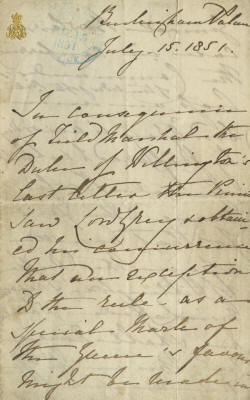 Buckingham Palace
July. 15. 1851.
In consequence
of Field Marshal the
Duke of Wellington's
last letter the
saw Lord Grey & obtain-
ed his concurrence
that an exception
to the rule - as a
special Mark of
the Queen's favour
might be made